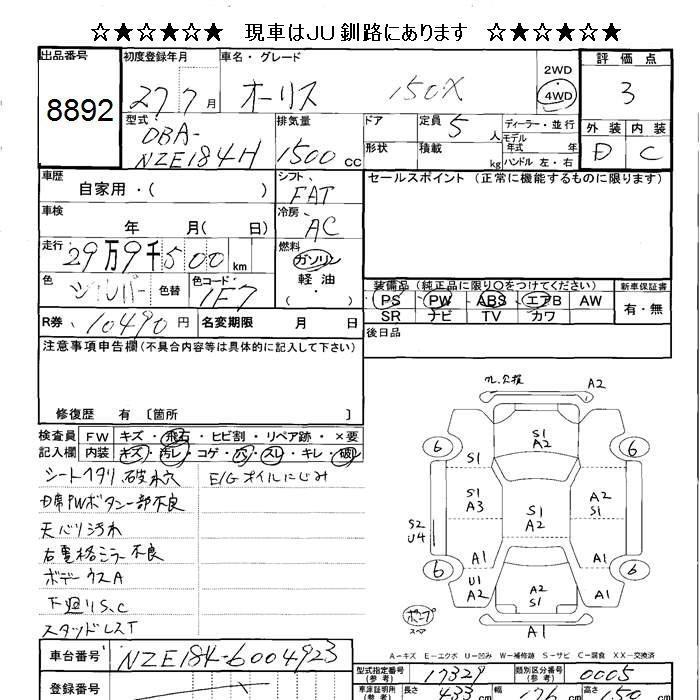 ☆★☆★☆★ 現車はJU釧路にあります ☆★☆★☆★
出品番号 初度登録年月 車名・グレード 評価点
8892 27 7月 オーリス 150X 2WD 4WD 3
型式 排気量 ドア 定員 5人 ディーラー・並行 外装 内装
DBA-NZE184H 1500cc 形状 積載 kg モデル年式 年 ハンドル 左・右 D C
車歴 シフト セールスポイント (正常に機能するものに限ります)
自家用・( ) FAT
車検 冷房
年 月( 日) AC
走行 燃料
29万9千500km ガソリン
色 シルバー 色替 色コード・1F7 軽油
( )
装備品 (純正品に限り○をつけてください) 新車保証書
PS PW ABS エアB AW 有・無
SR ナビ TV カワ
R券 10490円 名変期限 月 日 後日品
注意事項申告欄(不具合内容等は具体的に記入して下さい)
修復歴 有 〔箇所 〕
検査員 FW キズ・飛石・ヒビ割・リペア跡・×要
記入欄 内装 キズ・汚レ・コゲ・穴・スレ・キレ・破レ
シートヘタリ 破れ穴 E/Gオイルにじみ
D席PWボタン一部不良
天バリ汚れ
右電格ミラー不良
ボデー ウスA
下廻りS、C
スタッドレスT
A2
S1
A2
6 6
S1
S1
A3
S1
A2
A2
S1
S2
U4
A1 A1
6 6
U1
A2
A2
S1
A1
ボコフ
スペア
A1
A-キズ E-エクボ U-凹み W-補修跡 S-サビ C-腐食 XX-交換済
車台番号 NZE184-6004923 型式指定番号(参考) 17329 類別区分番号(参考) 0005
登録番号 車庫証明用(参考) 長さ 433cm 幅 176cm 高さ 150cm